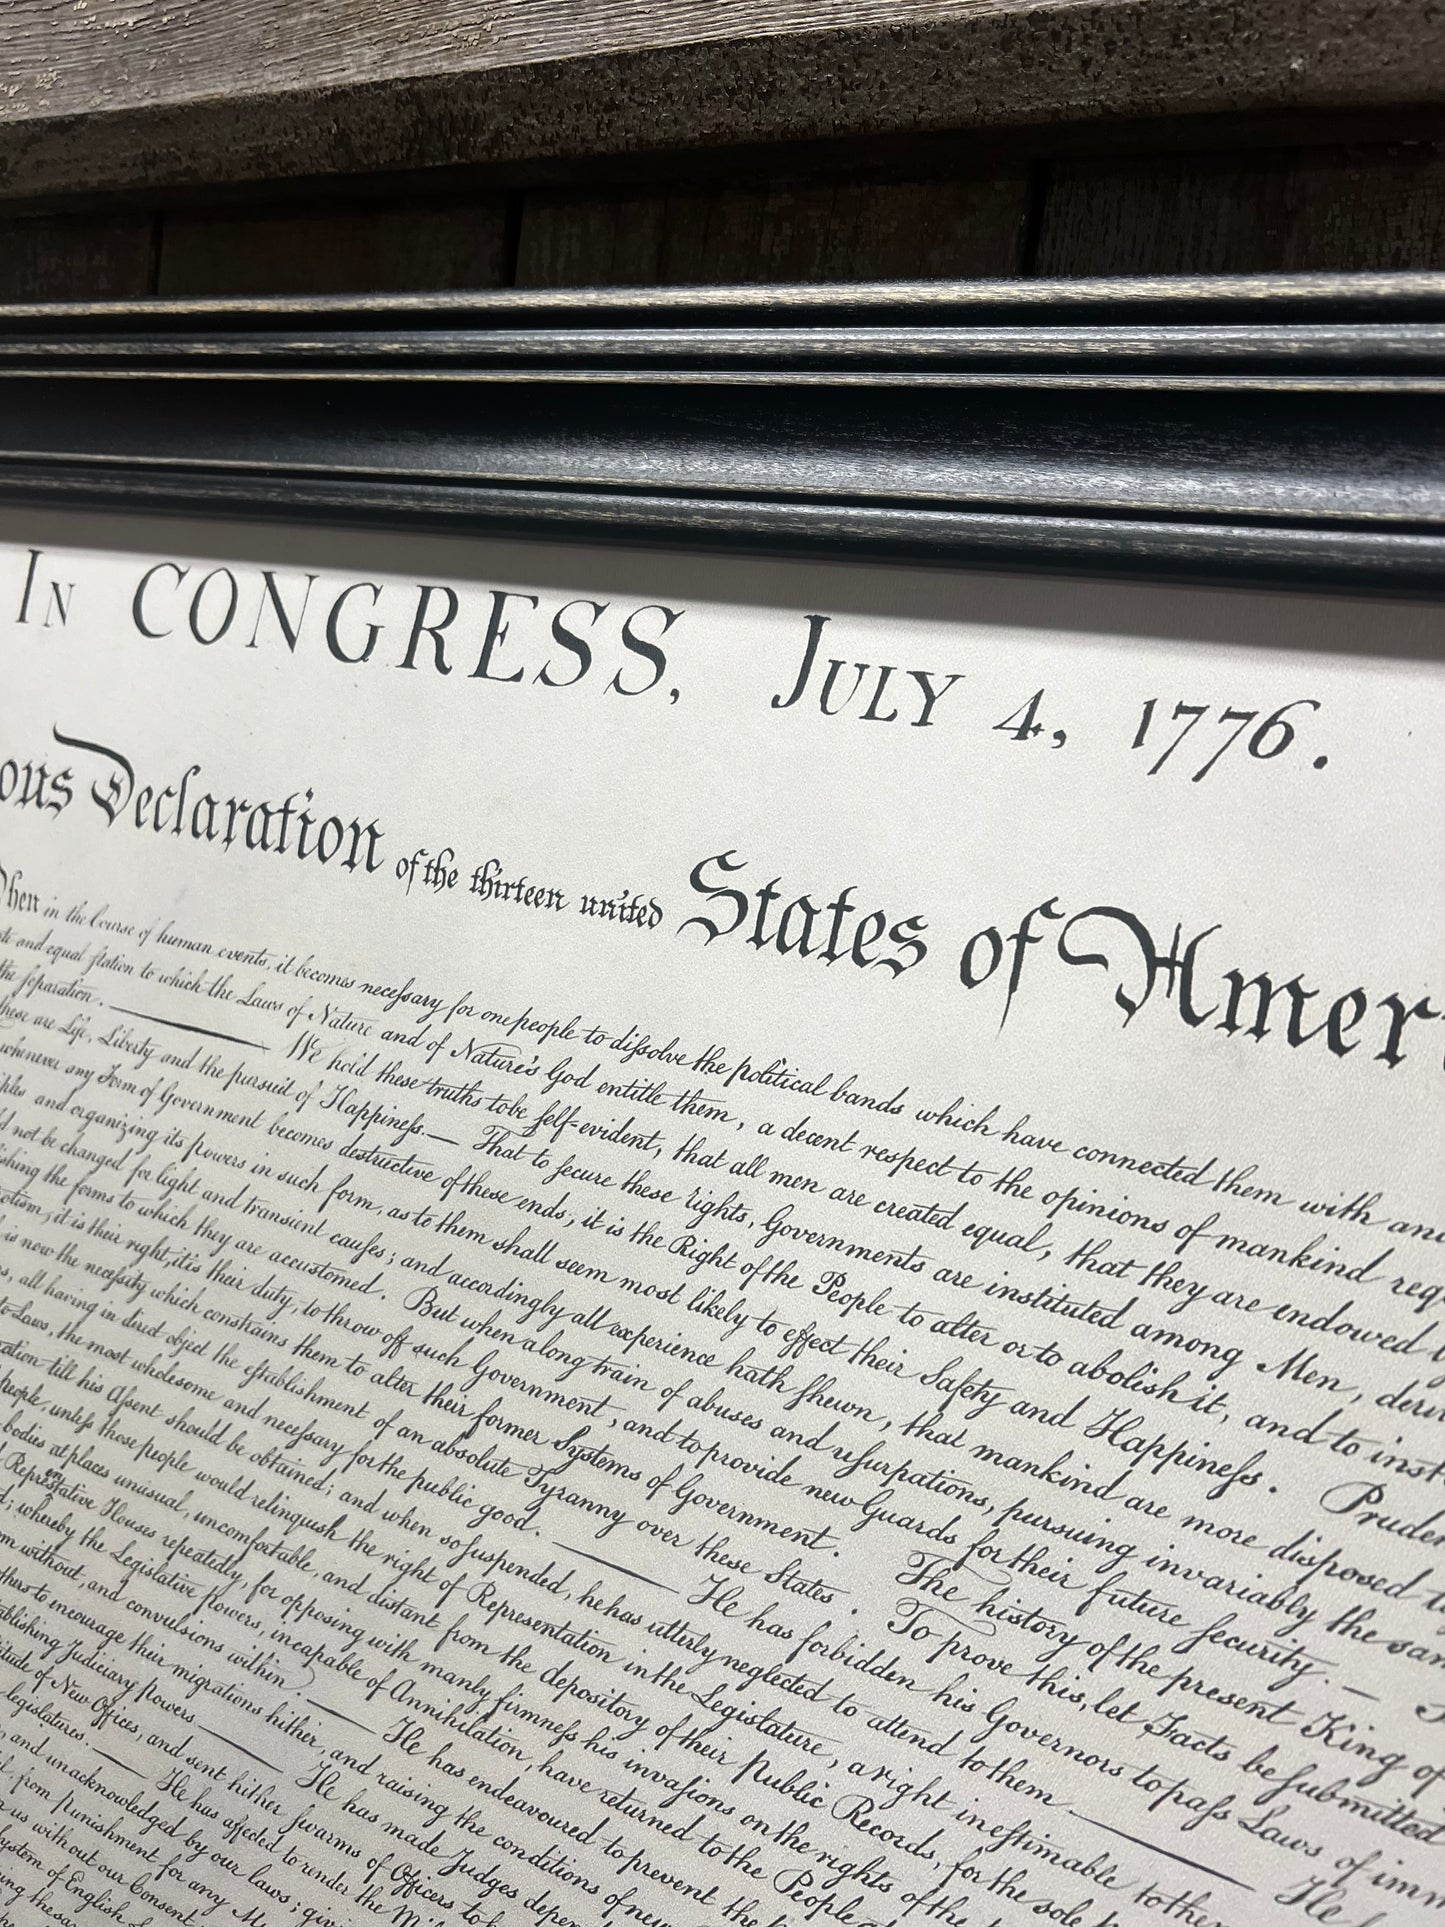 In CONGRESS, July 4, 1776.
ous Declaration of the thirteen united States of Amer
When in the Course of human events, it becomes necessary for one people to dissolve the political bands which have connected them with
and equal station to which the Laws of Nature and of Nature's God entitle them, a decent respect to the opinions of mankind req
the separation. — We hold these truths to be self-evident, that all men are created equal, that they are endowed
these are Life, Liberty and the pursuit of Happiness.— That to secure these rights, Governments are instituted among Men, deriv
whenever any Form of Government becomes destructive of these ends, it is the Right of the People to alter or to abolish it, and to inst
ples and organizing its powers in such form, as to them shall seem most likely to effect their Safety and Happiness. Pruden
not be changed for light and transient causes; and accordingly all experience hath shewn, that mankind are more disposed to
ishing the forms to which they are accustomed. But when a long train of abuses and usurpations, pursuing invariably the sam
otism, it is their right, it is their duty, to throw off such Government, and to provide new Guards for their future security.—
is now the necessity which constrains them to alter their former Systems of Government. The history of the present King of
all having in direct object the establishment of an absolute Tyranny over these States. To prove this, let Facts be submitted
to Laws, the most wholesome and necessary for the public good. — He has forbidden his Governors to pass Laws of imm
ration till his Assent should be obtained; and when so suspended, he has utterly neglected to attend to them. — He
people, unless those people would relinquish the right of Representation in the Legislature, a right inestimable to them
bodies at places unusual, uncomfortable, and distant from the depository of their public Records, for the sole
Representative Houses repeatedly, for opposing with manly firmness his invasions on the rights of the
; whereby the Legislative powers, incapable of Annihilation, have returned to the People
without, and convulsions within. — He has endeavoured to prevent the
to encourage their migrations hither, and raising the conditions of new
ablishing Judiciary powers. — He has made Judges depen
titude of New Offices, and sent hither swarms of Officers to h
legislatures. — He has affected to render the Mil
and unacknowledged by our laws; giv
from punishment for any M
us without our Consent
ystem of English